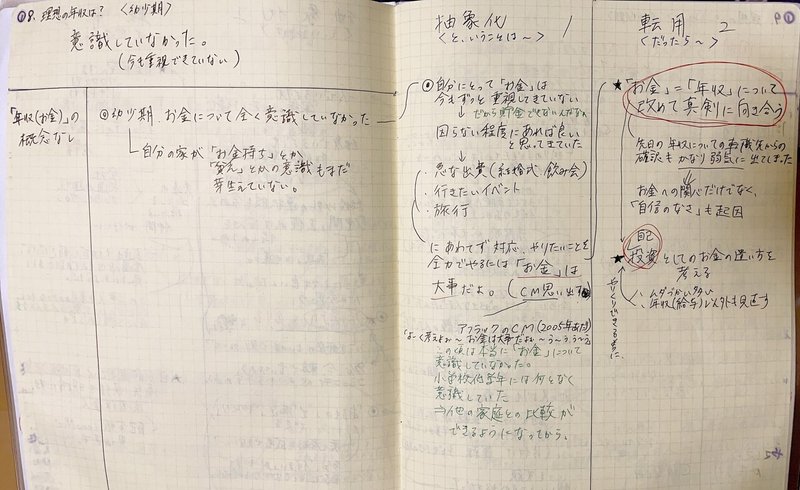 ⑲. 理想の年収は？ 〈幼少期〉
意識していなかった。
(今も重視できていない)
「年収(お金)」の
概念なし
◎幼少期、お金について全く意識していなかった
自分の家が「お金持ち」とか
「貧乏」とかの意識もまだ
芽生えていない。
抽象化 1
〈と、いうことは〜〉
●自分にとって「お金」は
今もずっと重視してきていない
↓だから貯金できない
困らない程度にあれば良い
と思ってきていた
↓
・急な出費(結婚式、飲み会)
・行きたいイベント
・旅行
にあわてず対応、やりたいことを
全力でやるには「お金」は
大事だよ。(CM思い出す)
アフラックのCM(2005年あたり)
「よ〜く考えよ〜 お金は大事だよ〜 う〜う、う〜う」
この頃は本当に「お金」について
意識していなかった。
小学校低学年には何となく
意識していた
⇒他の家庭との比較が
できるようになってから。
転用 2
〈だったら〜〉
★「お金」=「年収」について
改めて真剣に向き合う
先日の年収についての
確認もかなり弱気に出てしまった
↓
お金への関心だけでなく、
「自信のなさ」も起因
★自己投資としてのお金の遣い方を
考える
ムダづかい
年収(給与)以外も見直す
やりくりできるように